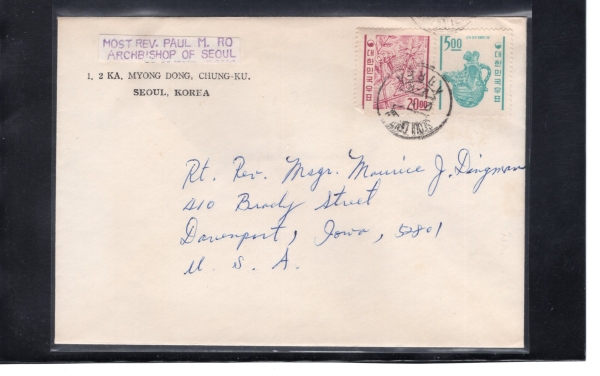 MOST REV. PAUL M. RO
ARCHBISHOP OF SEOUL
1, 2 KA, MYONG DONG, CHUNG-KU.
SEOUL, KOREA
대한민국우표
20.00
5.00
대한민국우표
Rt. Rev. Msgr. Maurice J. Dingman
410 Brady Street
Davenport, Iowa, 52801
U. S. A.